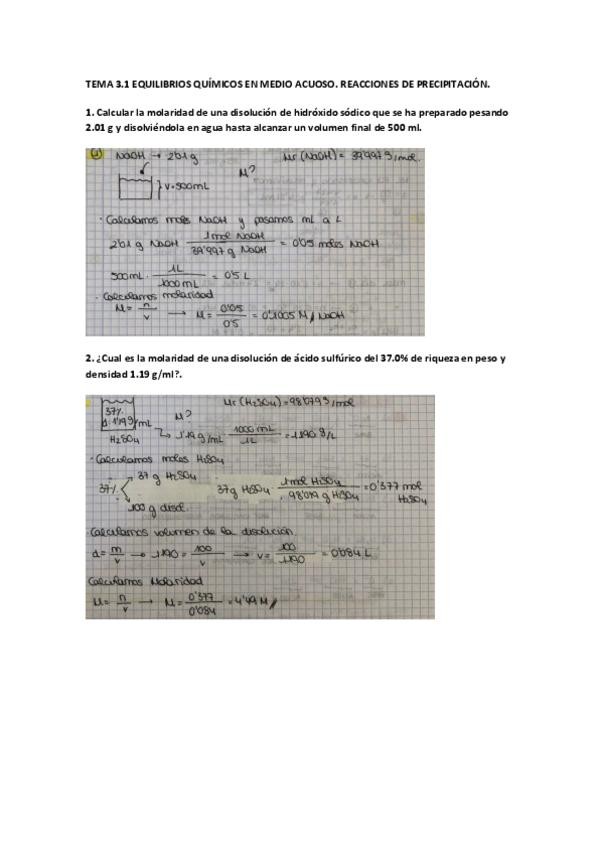 TEMA 3.1 EQUILIBRIOS QUÍMICOS EN MEDIO ACUOSO. REACCIONES DE PRECIPITACIÓN.
1. Calcular la molaridad de una disolución de hidróxido sódico que se ha preparado pesando
2.01 g y disolviéndola en agua hasta alcanzar un volumen final de 500 ml.
NaOH → 2'01 g    Mr (NaOH) = 39'997 g/mol.
M?
V=500mL
· Calculamos moles NaOH y pasamos mL a L
2'01 g NaOH · 1 mol NaOH / 39'997 g NaOH = 0'05 moles NaOH
500mL · 1L / 1000mL = 0'5 L
· Calculamos molaridad
M = n / v → M = 0'05 / 0'5 = 0'1005 M NaOH
2. ¿Cual es la molaridad de una disolución de ácido sulfúrico del 37.0% de riqueza en peso y
densidad 1.19 g/ml?.
Mr (H2SO4) = 98'079 g/mol
37%
d: 1'19 g/mL    M?
H2SO4 → 1'19 g/mL · 1000 mL / 1L = 1.190 g/L
· Calculamos moles H2SO4
37% 37 g H2SO4
100 g disol.
37g H2SO4 · 1mol H2SO4 / 98'079 g H2SO4 = 0'377 mol H2SO4
· Calculamos volumen de la disolución
d = m / v → 1.190 = 100 / v → v = 100 / 1.190 = 0'084 L
Calculamos Molaridad
M = n / v → M = 0'377 / 0'084 = 4'49 M